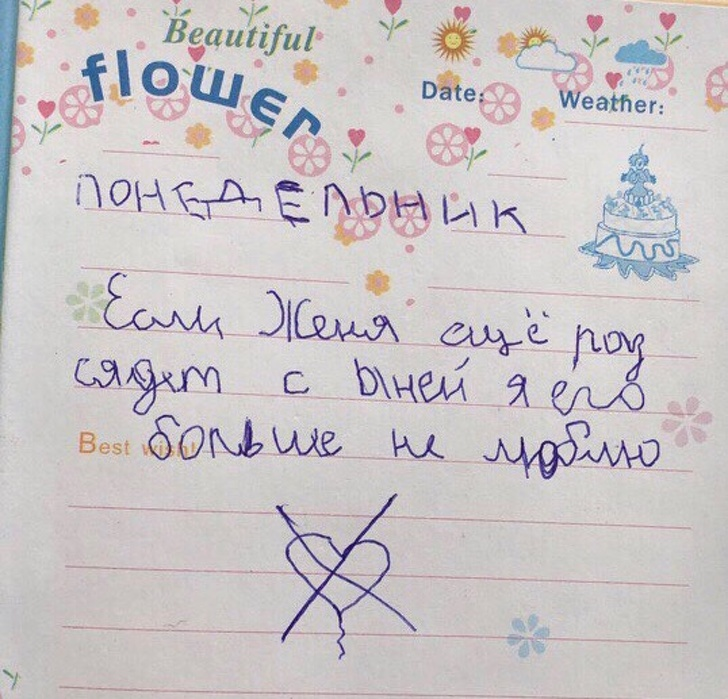 Beautiful
flower
Date:
Weather:
ПОНЕДЕЛЬНИК
Если Женя ещё роз
сядет с Ыней я его
Best wish!
больше не люблю